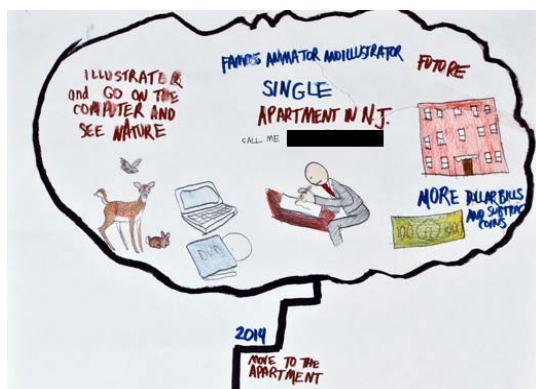 ILLUSTRATER
and GO ON THE
COMPUTER AND
SEE NATURE
FAMOUS ANIMATOR AND ILLUSTRATOR
SINGLE
APARTMENT IN N.J.
CALL ME
FUTURE
MORE DOLLAR BILLS
AND SUBTRACT
COINS
DVD
100
100
2014
MOVE TO THE
APARTMENT